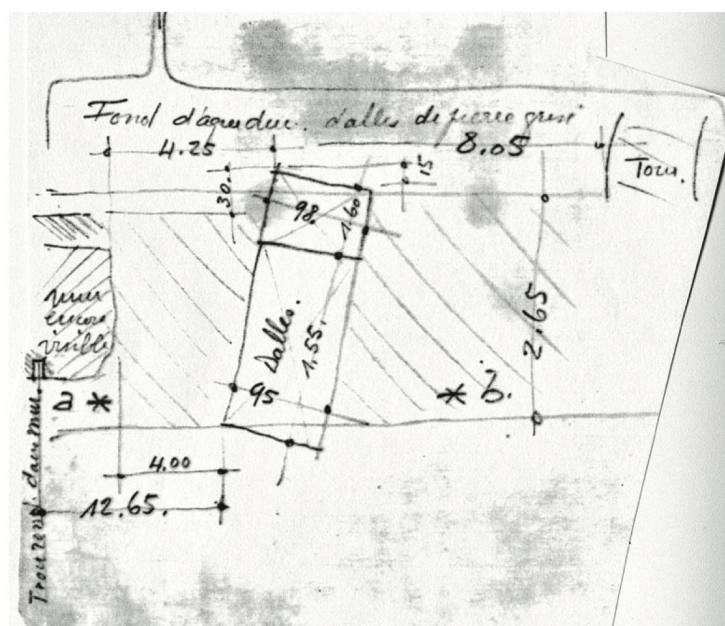 Fond d'aqueduc. dalles de pierre grise
4.25
8.05
Tour.
30.
15
98.
1.60
mur
encore
visible
Dalles.
1.55.
2.65
a *
95
* b.
4.00
12.65.
Trou rond dans mur.